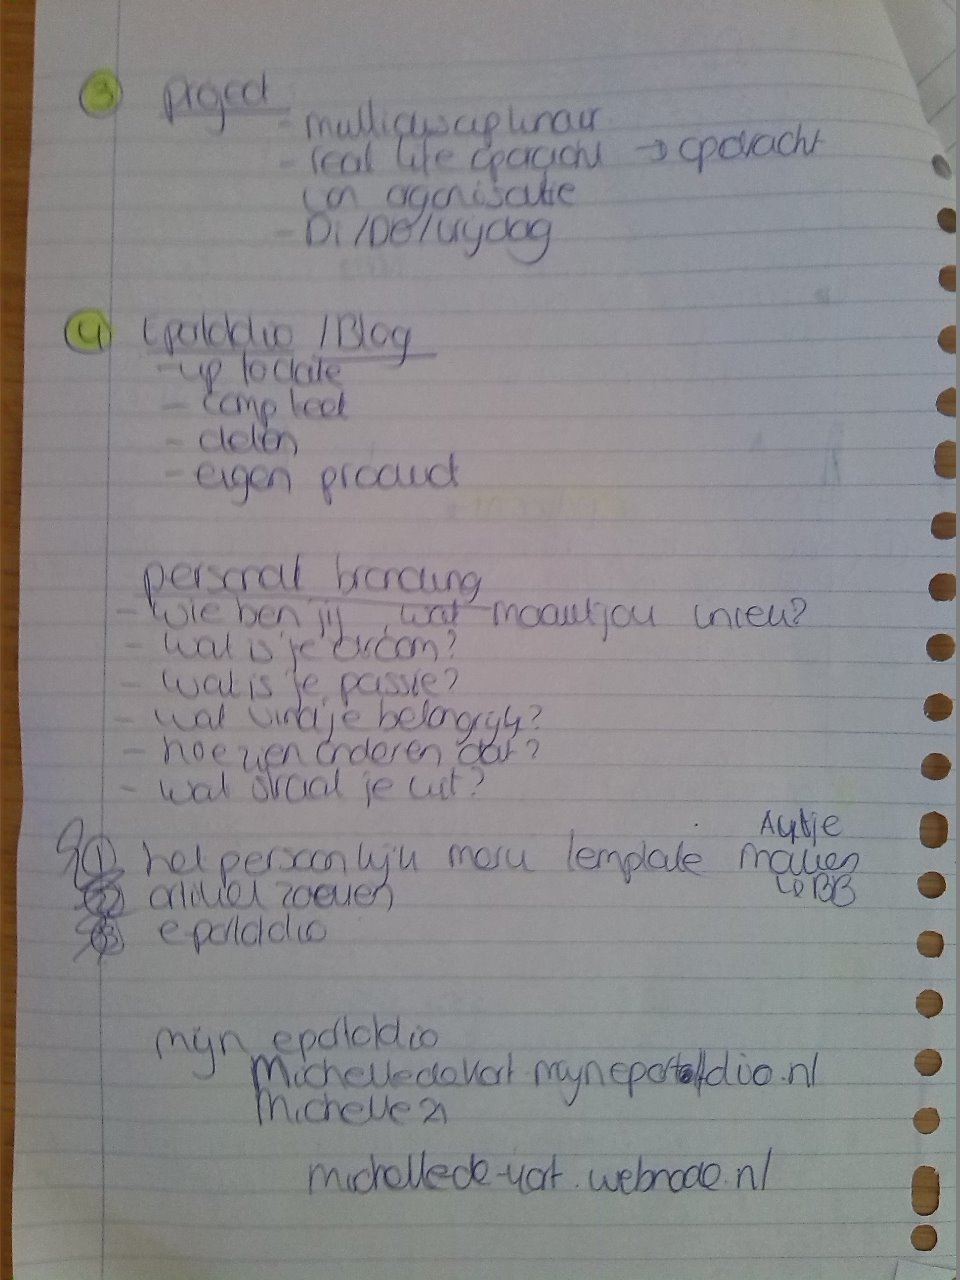 3 project
- multidisciplinair
- real life opdracht → opdracht
van organisatie
- Di/Do/vrijdag
4 Eportfolio / Blog
- up to date
- compleet
- delen
- eigen product
personal branding
- wie ben jij, wat maakt jou uniek?
- wat is je droom?
- wat is je passie?
- wat vind je belangrijk?
- hoe zien anderen dat?
- wat straal je uit?
Aukje
1 het persoonlijk template maken
↳ BB
2 artikel zoeken
3 eportfolio
mijn eportfolio
.mijneportofolio.nl
Michelle21
.webnode.nl